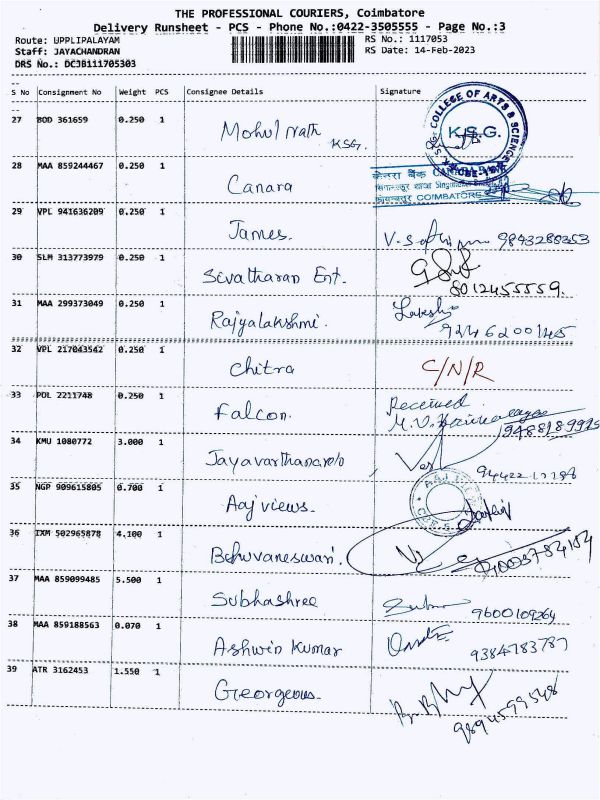 THE PROFESSIONAL COURIERS, Coimbatore
Delivery Runsheet - PCS - Phone No.:0422-3505555 - Page No.:3
Route: UPPLIPALAYAM RS No.: 1117053
Staff: JAYACHANDRAN RS Date: 14-Feb-2023
DRS No.: DCJB111705303
S No Consignment No Weight PCS Consignee Details Signature
27 BOD 361659 0.250 1 Mohul nath KSG. COLLEGE OF ARTS & SCIENCE K.S.G.
28 MAA 859244467 0.250 1 Canara केनरा बैंक CANARA BANK
COIMBATORE
29 VPL 941636209 0.250 1 James. 9843280353
30 SLM 313773979 0.250 1 Sivatharan Ent. 8012455559.
31 MAA 299373049 0.250 1 Rajyalakshmi. 9246200145
32 VPL 217043542 0.250 1 Chitra C/N/R
33 PDL 2211748 0.250 1 Falcon. Received
34 KMU 1080772 3.000 1
35 NGP 909615805 0.700 1 Aaj views.
36 IXM 502965878 4.100 1 Bhuvaneswari.
37 MAA 859099485 5.500 1 Subhashree 9600109264
38 MAA 859188563 0.070 1 Ashwin Kumar 9384783787
39 ATR 3162453 1.550 1 Georgeous. 9894599548